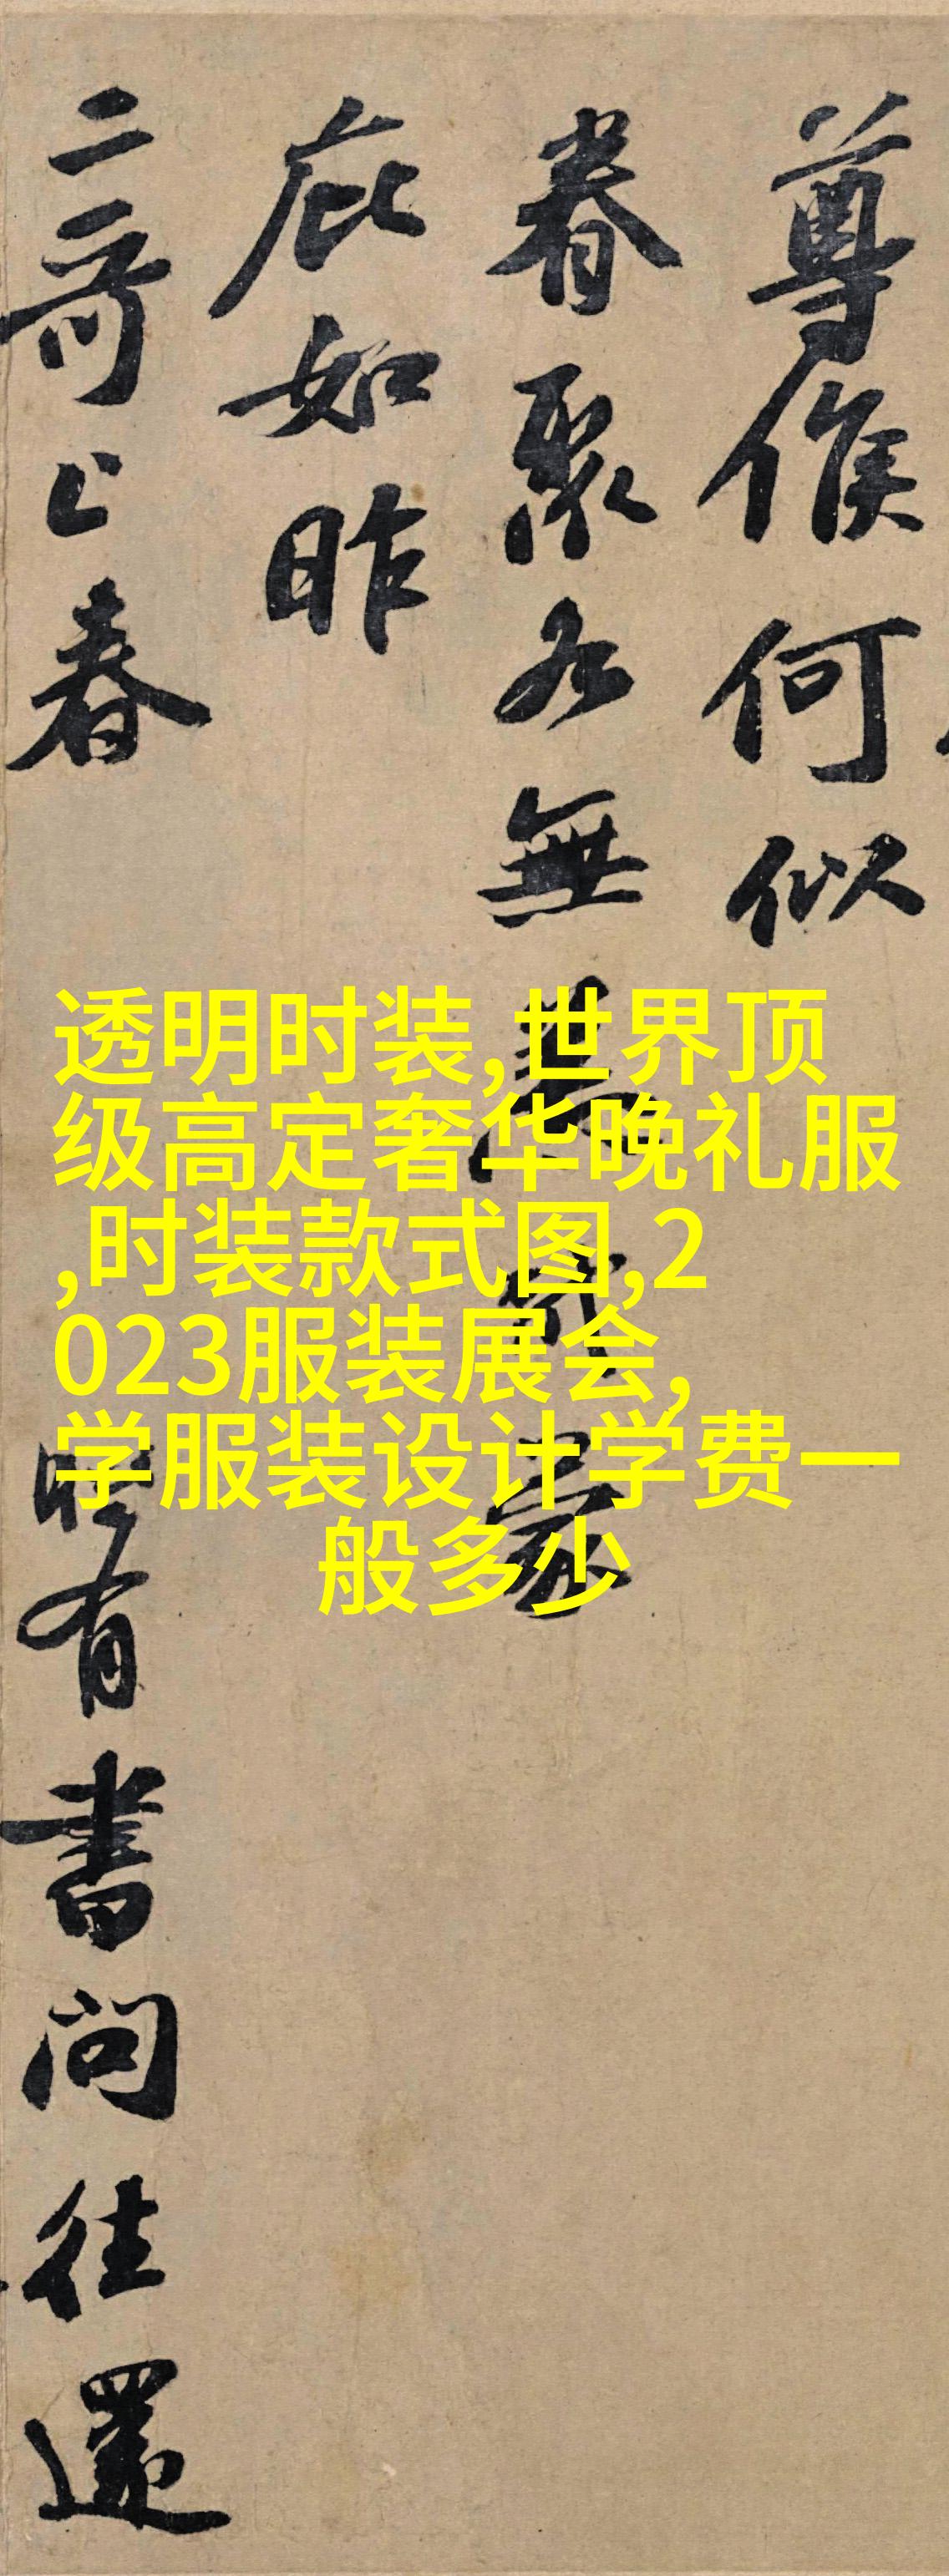 尊候何似
眷聚各無恙
庇如昨
二哥上春
有書問往還
透明时装,世界顶
级高定奢华晚礼服
,时装款式图,2
023服装展会,
学服装设计学费一
般多少